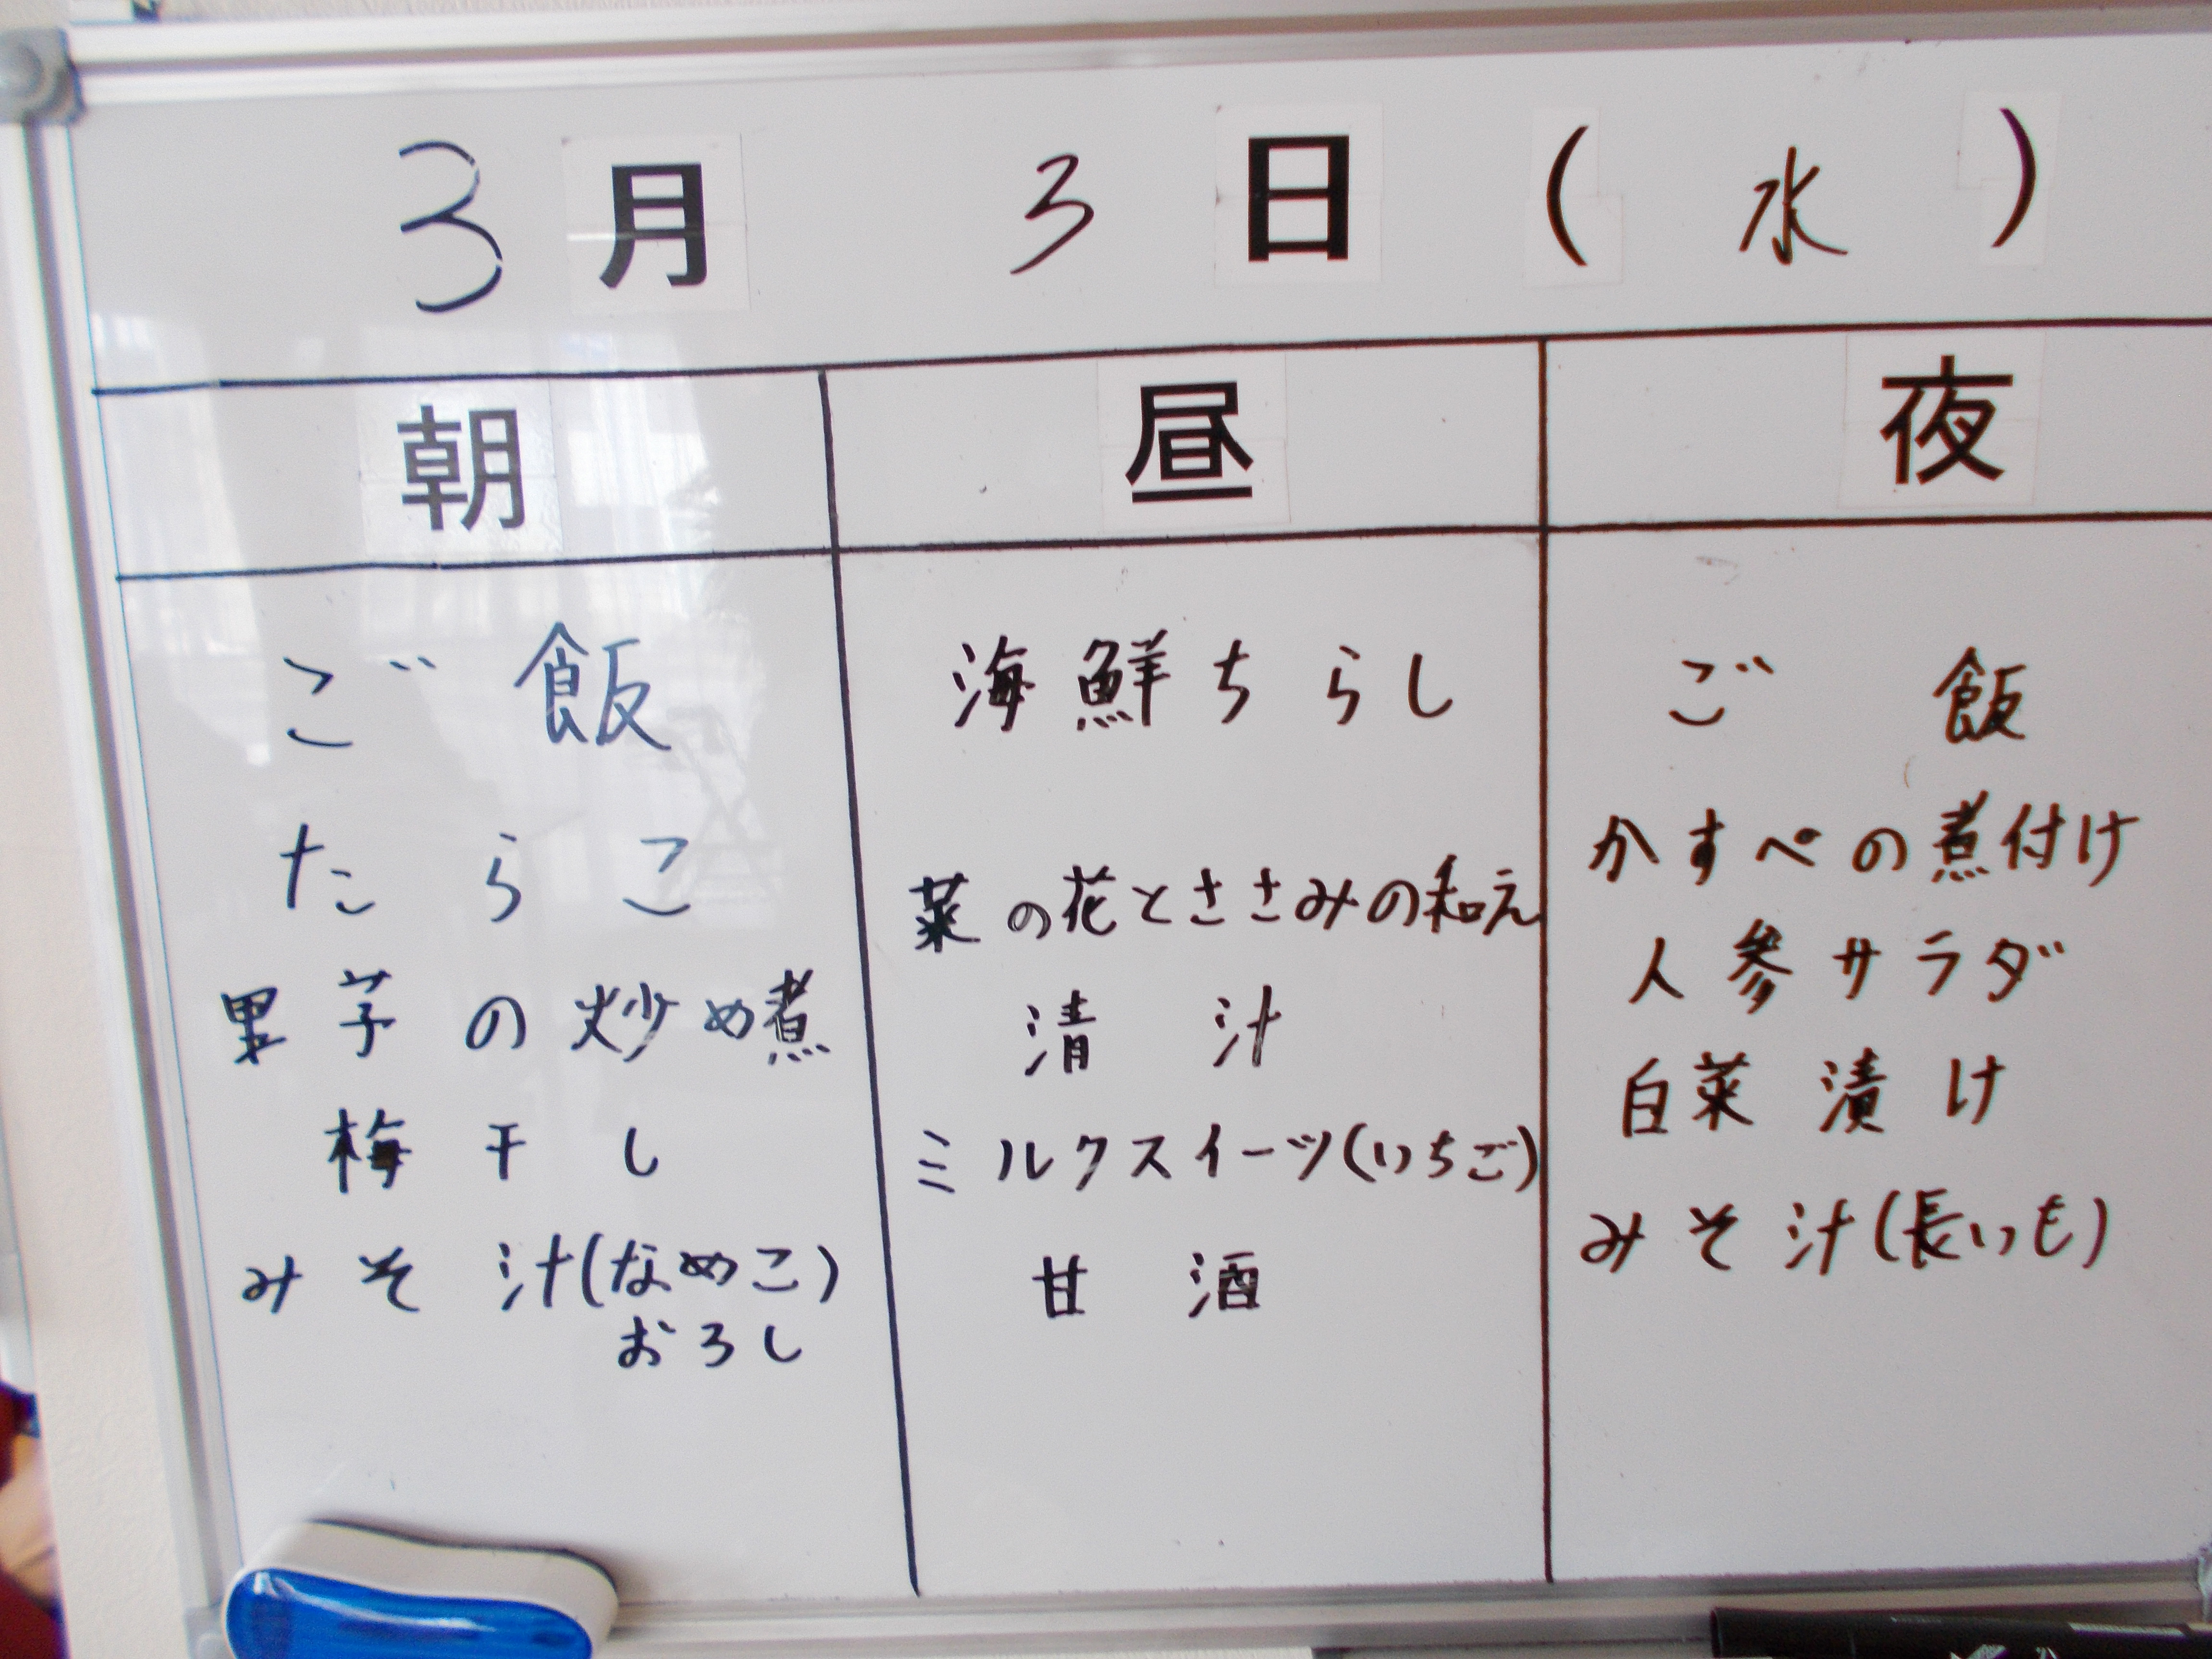 3月 3日(水)
朝
ご飯
たらこ
里芋の炒め煮
梅干し
みそ汁(なめこ)
おろし
昼
海鮮ちらし
菜の花とささみの和え
清汁
ミルクスイーツ(いちご)
甘酒
夜
ご飯
かすべの煮付け
人参サラダ
白菜漬け
みそ汁(長いも)